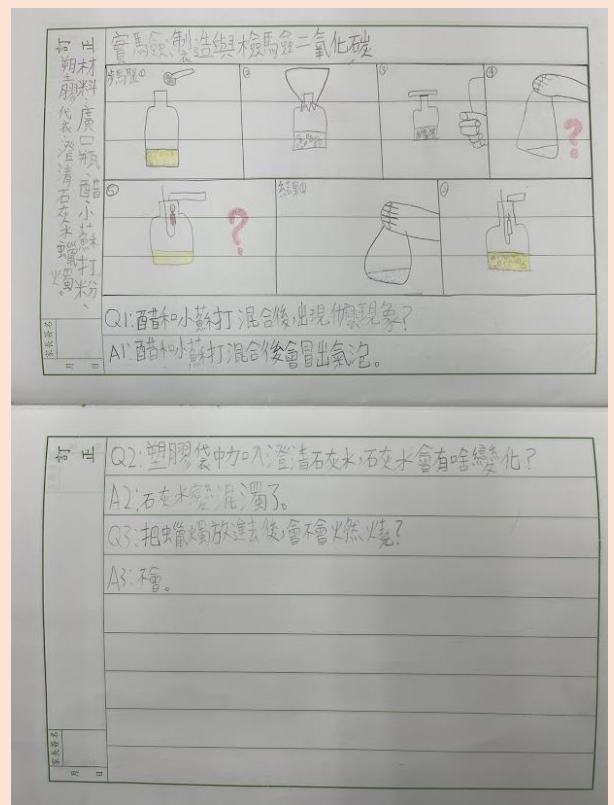 訂正
材料:廣口瓶、醋、小蘇打粉、
塑膠代衣、澄清石灰水、蠟燭。
實驗:製造與檢驗二氧化碳
步驟①
②
③
④
?
⑤
?
結果①
②
Q1:醋和小蘇打混合後,出現什麼現象?
A1:醋和小蘇打混合後會冒出氣泡。
家長簽名
月 日
訂正
Q2:塑膠袋中加入澄清石灰水,石灰水會有啥變化?
A2:石灰水變混濁了。
Q3:把蠟燭放進去後,會不會火燃燒?
A3:不會。
家長簽名
月 日